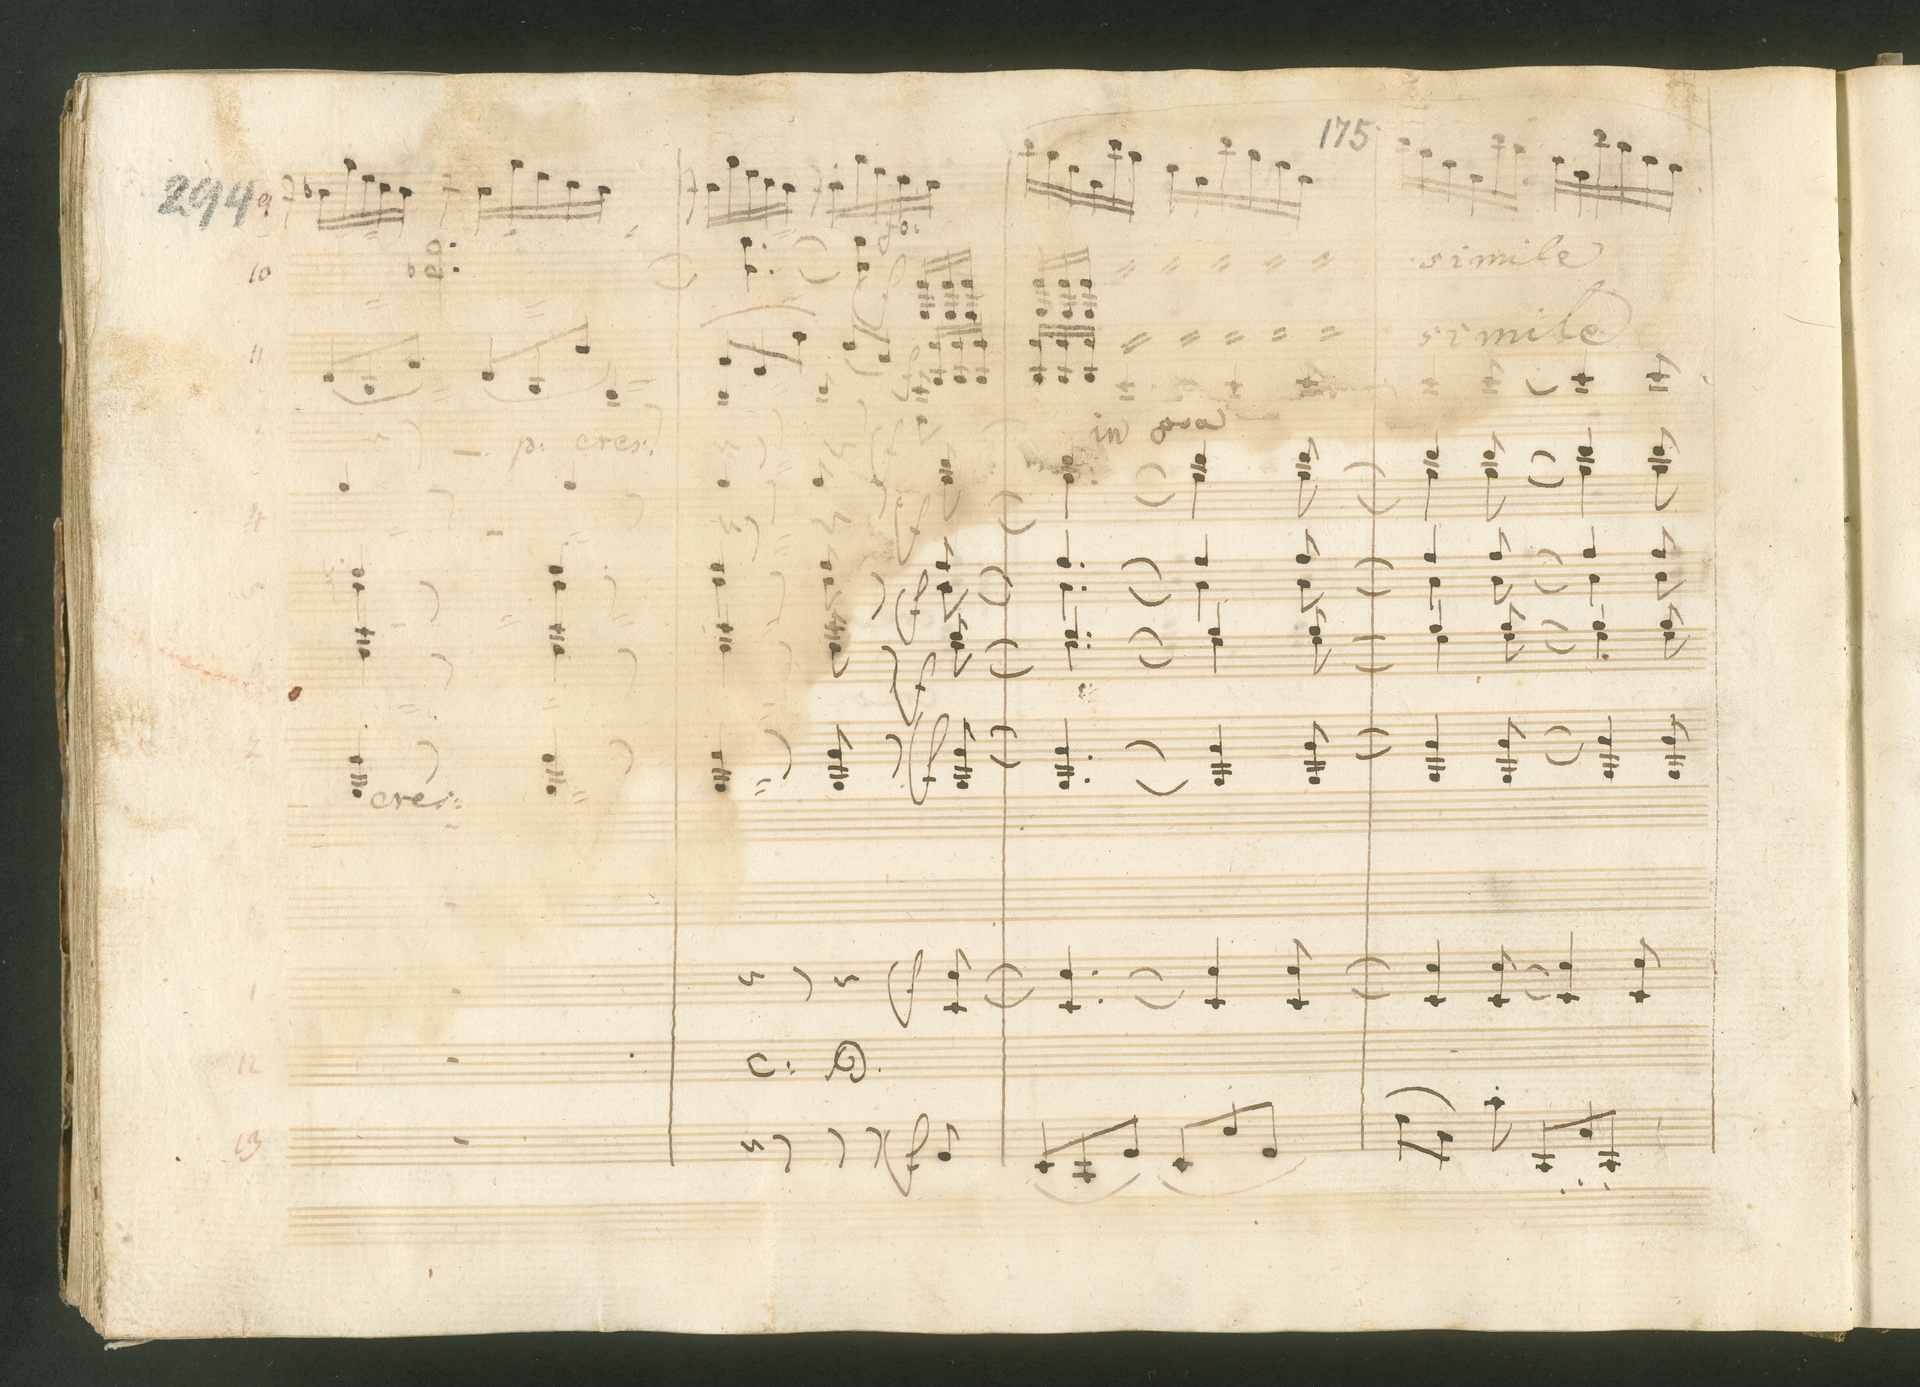 175
294
9
10
simile
11
simile
in 8va
p: cres:
4
5
6
2
cres:
1
12
13